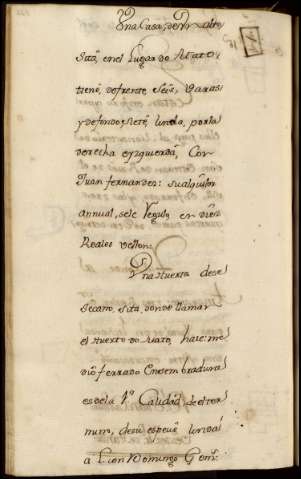 Una Casa, de Un alto
Sita, en el Lugar de
tiene, de frente, Seis, Varas
y de fondo Siete, Linda, por la
derecha e yzquierda, Con
Juan fernandez: su alquiler
annual, se le Regula en diez
Reales vellon.
Una Huerta de
Secano, sita, donde llaman
el Huerto do haze: me
dio ferrado En sembradura
es de la 1ª Calidad, de el ter
mino, de su especie, linda
a Domingo Gomz